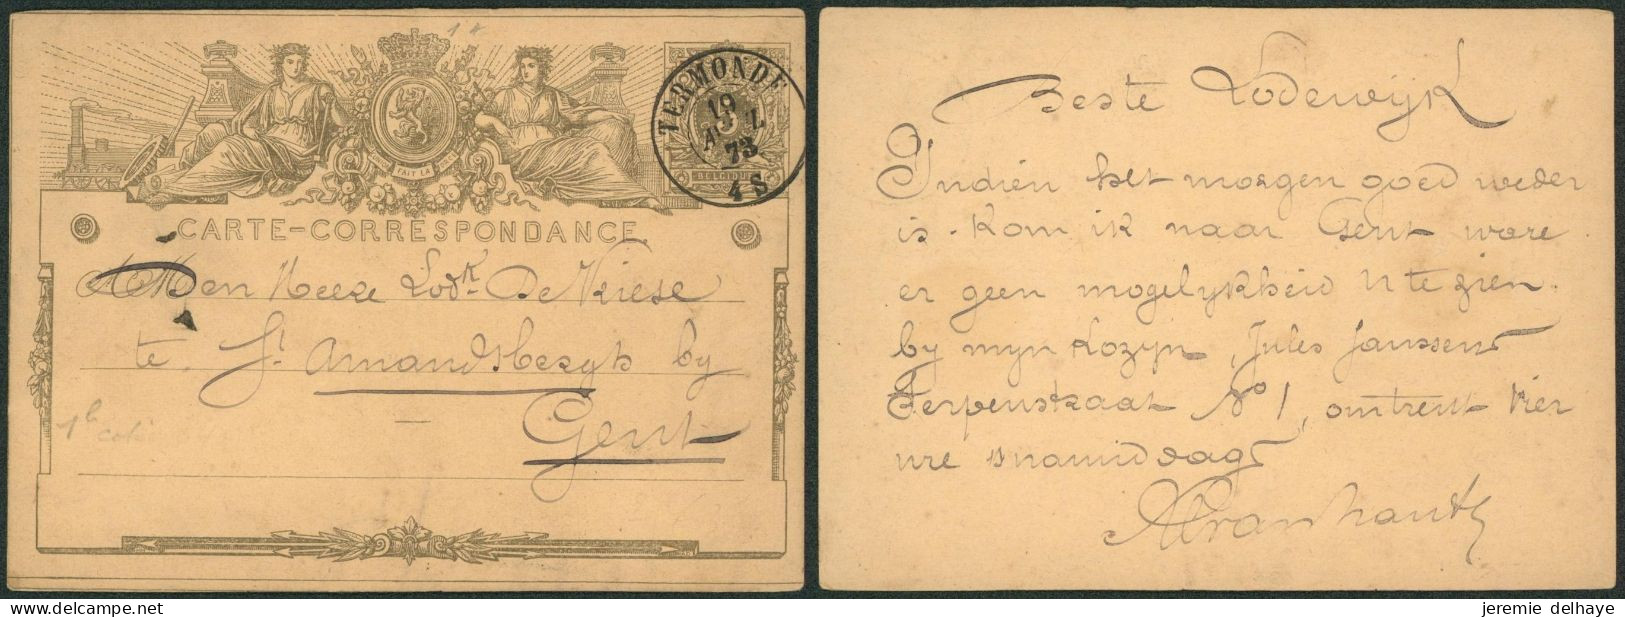 1 *
TERMONDE
19
73
4 S
FAIT LA
BELGIQUE
CARTE-CORRESPONDANCE
Den Heere Lodk. De Vriese
te St. Amandsbergh by
Gent
Beste Lodewijk
Indien het morgen goed weder
is. Kom ik naar Gent ware
er geen mogelykheid U te zien
by myn Kozyn, Jules Janssens
Serpenstraat No 1, omtrent vier
ure snamiddags
www.delcampe.net
jeremie delhaye